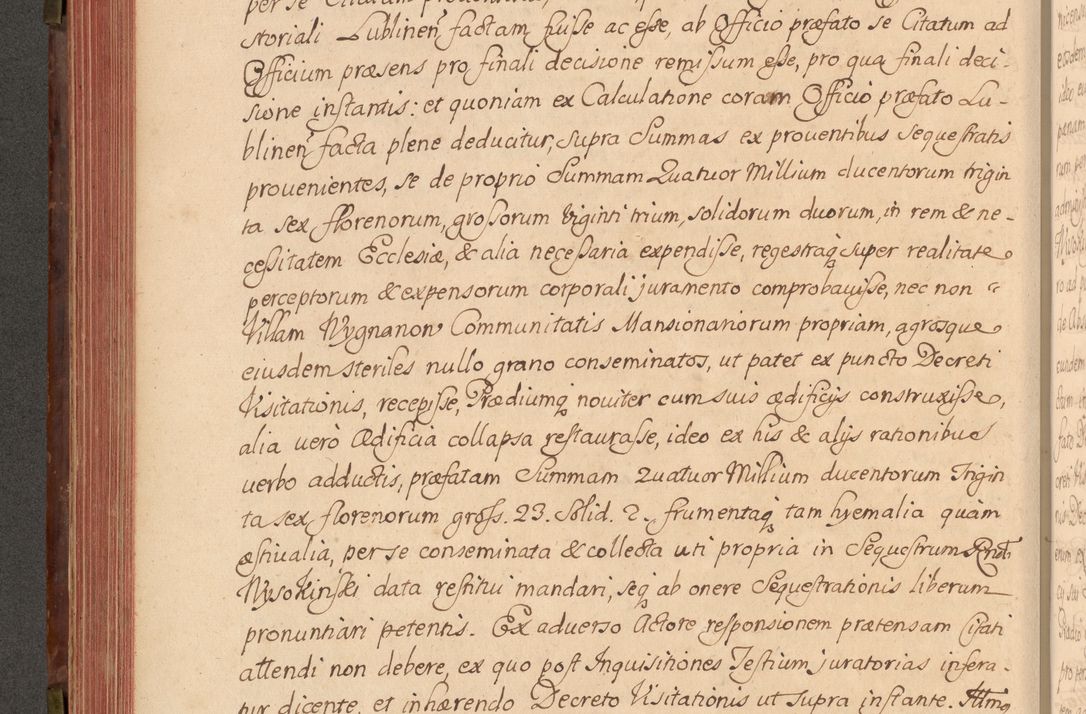 storiali Lublinen̄ factam fuisse ac esse, ab Officio præfato se Citatum ad
Officium præsens pro finali decisione remissum esse, pro qua finali deci-
sione instantis: et quoniam ex Calculatione coram Officio præfato Lu-
blinen̄ facta plene deducitur, supra Summas ex prouentibus sequestratis
prouenientes, se de proprio Summam Quatuor Millium ducentorum trigin
ta sex florenorum, grossorum viginti trium, solidorum duorum, in rem & ne-
cessitatem Ecclesiæ, & alia necessaria expendisse, regestraq̨ super realitate
perceptorum & expensorum corporali juramento comprobavisse, nec non
Villam Wygnanow Communitatis Mansionariorum propriam, agrosque
eiusdem steriles nullo grano conseminatos, ut patet ex puncto Decreti
Visitationis, recepisse, Prædiumq̨ noviter cum suis ædificijs construxisse,
alia verò Ædificia collapsa restaurasse, ideo ex his & alijs rationibus
verbo adductis, præfatam Summam Quatuor Millium ducentorum Trigin
ta sex florenorum gross. 23. Solid. 2. frumentaq̨ tam hyemalia quàm
æstivalia, per se conseminata & collecta uti propria in Sequestrum Rndi
Wysokinski data restitui mandari, seq̨ ab onere Sequestrationis liberum
pronuntiari petentis. Ex adverso Actore responsionem prætensam Citati
attendi non debere, ex quo post Inquisitiones Testium juratorias insera-
tur dicente, et inhærendo Decreto Visitationis ut supra instante. Illmq̨